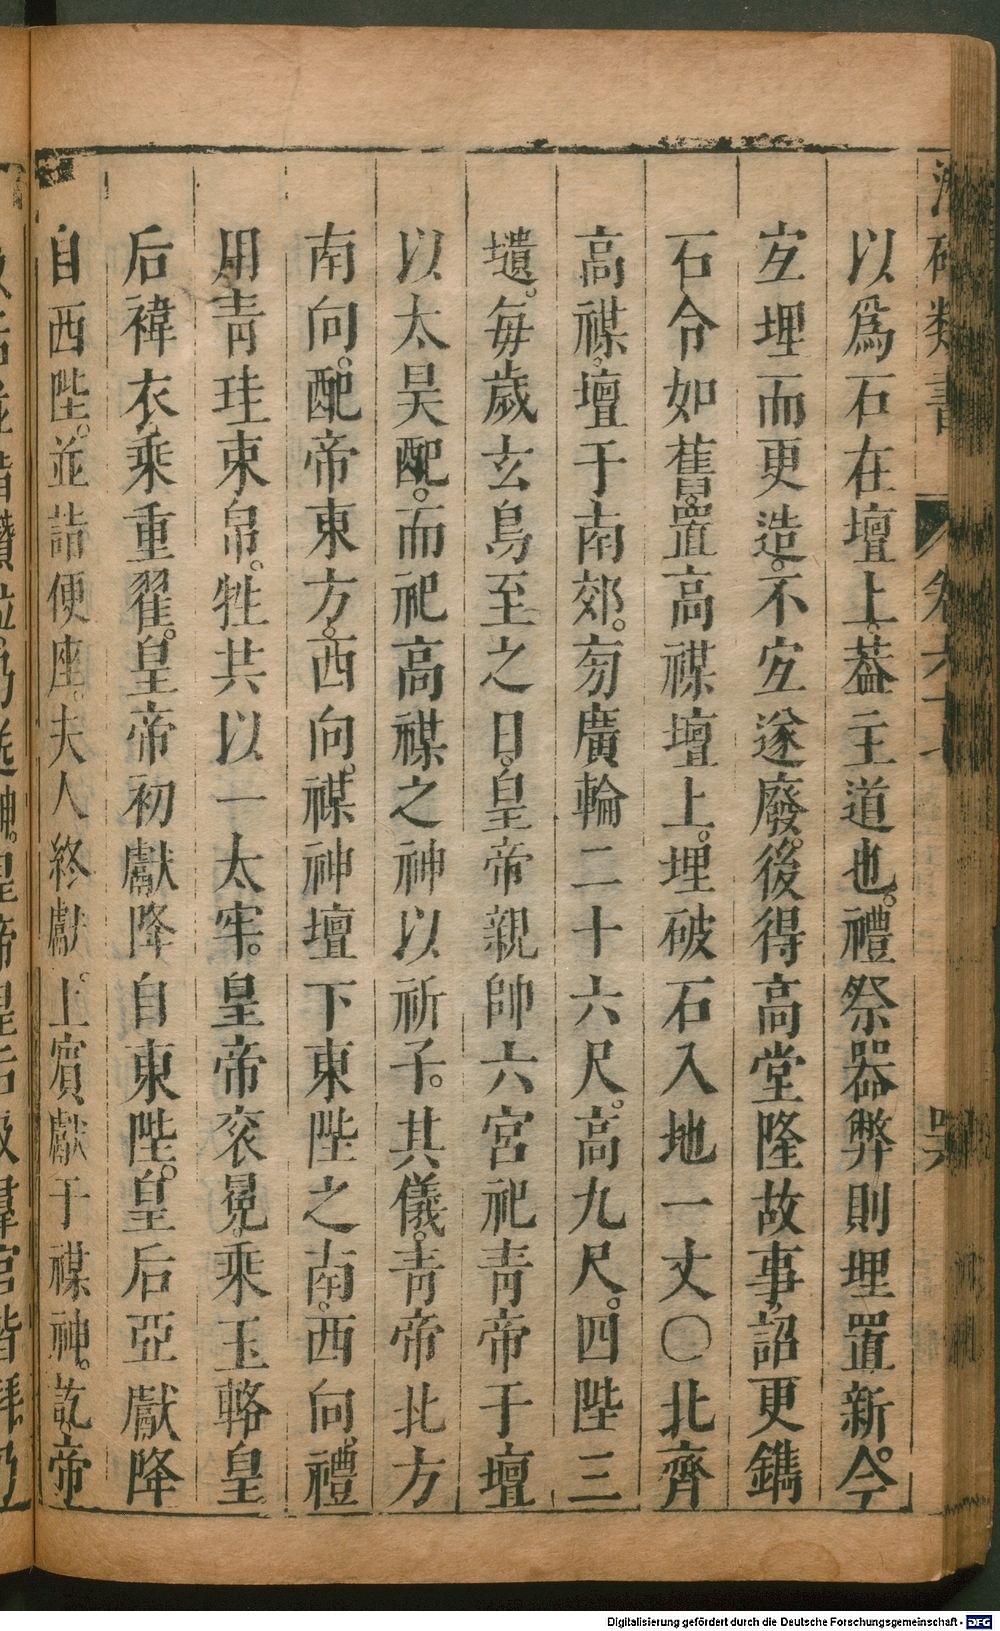 以爲石在壇上。葢主道也。禮祭器弊則埋置新。今
宐埋而更造。不宐遂廢。後得高堂隆故事。詔更鐫
石令如舊。置高禖壇上。埋破石入地一丈〇北齊
高禖。壇于南郊。㫄廣輪二十六尺。高九尺。四陛三
壝。每歲玄鳥至之日。皇帝親帥六宮祀青帝于壇
以太昊配。而祀高禖之神以祈子。其儀。青帝北方
南向。配帝東方。西向。禖神壇下東陛之南。西向。禮
用青珪束帛。牲共以一太牢。皇帝衮冕。乘玉輅皇
后褘衣。乘重翟。皇帝初獻降自東陛。皇后亞獻降
自西陛。並詣便座。夫人終獻。上賓獻于禖神。訖。帝
類書
卷六十
Digitalisierung gefördert durch die Deutsche Forschungsgemeinschaft - DFG